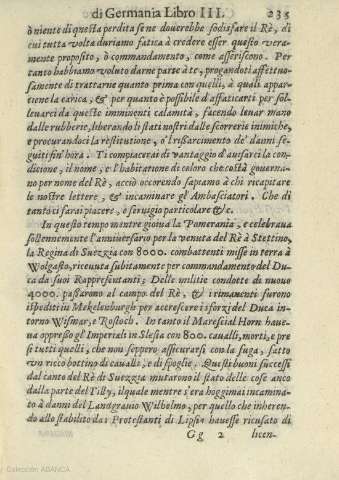 di Germania Libro III. 235
ò niente di questa perdita se ne douerebbe sodisfare il Rè, di
cui tutta volta duriamo fatica à credere esser questo vera-
mente proposito, ò commandamento, come asseriscono. Per
tanto habbiamo voluto darne parte à te, progandoti affettuo-
samente di trattarne quanto prima con quelli, à quali appar-
tiene la carica, & per quanto è possibile d'affaticarti per sol-
leuarci da queste imminenti calamità, facendo leuar mano
dalle rubberie, liberando li stati nostri dalle scorrerie inimiche,
e procurandoci la restitutione, ò'l risarcimento de' danni se-
guiti fin'hora. Ti compiacerai di vantaggio d'ausarci la con-
dicione, il nome, e l'habitatione di coloro che costà gouerna-
no per nome del Rè, acciò occorendo sapiamo à chi ricapitare
le nostre lettere, & incaminare gl' Ambasciatori. Che di
tanto ci sarai piacere, e seruigio particolare &c.
In questo tempo mentre gioiua la Pomerania, e celebraua
sollennemente l'anniuersario per la venuta del Rè à Stettino,
la Regina di Suezzia con 8000. combattenti misse in terra à
Wolgasto, riceuuta subitamente per commandamento del Du-
ca da suoi Rappresentanti; Delle militie condotte di nuouo
4000. passarono al campo del Rè, & i rimanenti furono
ispediti in Mekelenburgh per accrescere i sforzi del Duca in-
torno Wismar, e Rostoch. In tanto il Marescial Horn haue-
ua oppresso gl' Imperiali in Slesia con 800. caualli, morti, e pre
si tutti quelli, che non seppero assicurarsi con la fuga, fatto
vn ricco bottino di caualli, e di spoglie. Questi buoni successi
dal canto del Rè di Suezzia mutarono il stato delle cose anco
dalla parte del Tilly, il quale mentre s'era hoggimai incamina-
to à danni del Landgrauio Wilhelmo, per quello che inheren-
do allo stabilito da' Protestanti di Lipsia hauesse ricusato di
Gg 2 licen-
Colección ABANCA